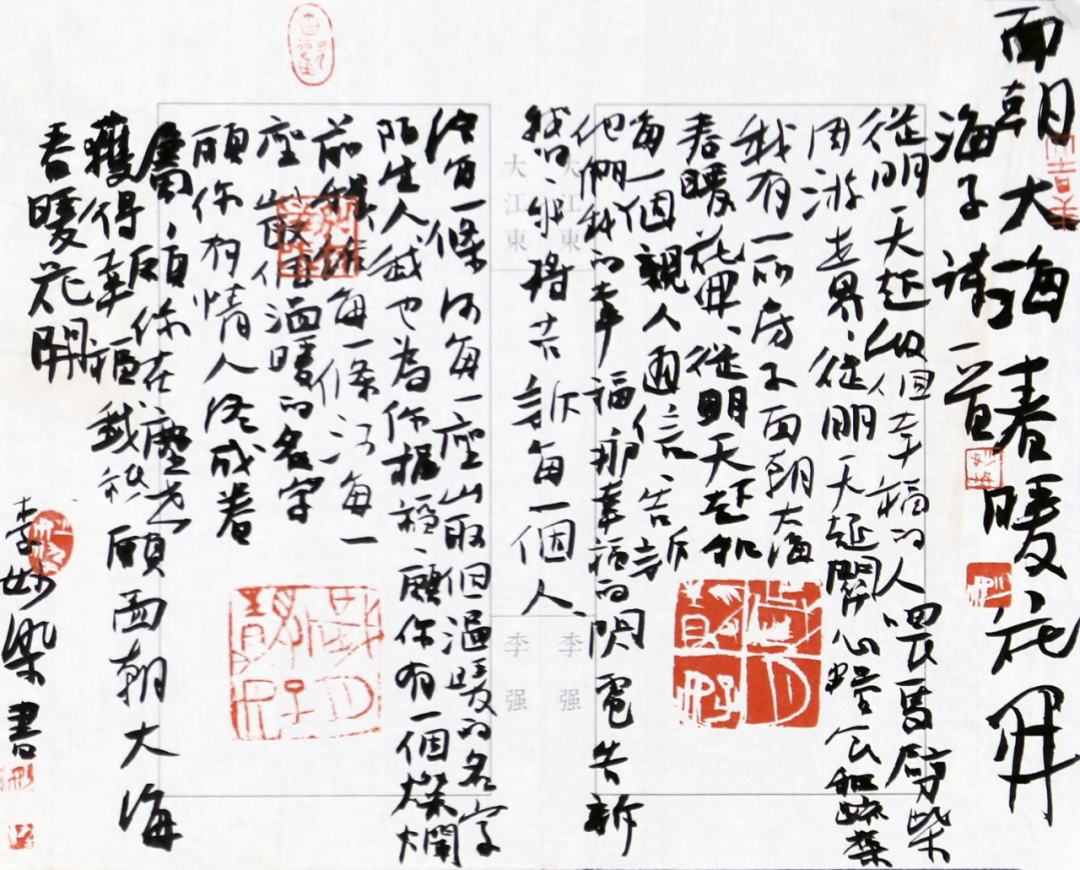 面朝大海春暖花开
海子詩一首
從明天起做個幸福的人喂馬劈柴
周游世界、從明天起關心糧食和蔬菜
我有一所房子面朝大海
春暖花開、從明天起和
每一個親人通信、告訴
他們我的幸福那幸福的閃電告訴
我的、我將告訴每一個人、
給每一條河每一座山取個溫暖的名字
陌生人我也為你祝福、願你有一個燦爛
前程 每一條江每一
座山取個溫暖的名字
願你有情人終成眷
屬、願你在塵世
獲得幸福我祇願面朝大海
春暖花開
李妙 書
大江東
大江東
李强
李强